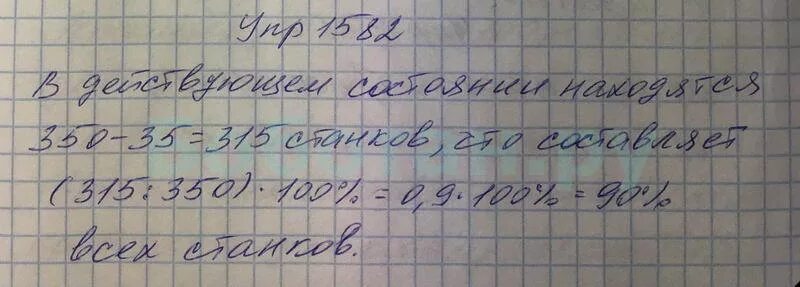 Упр 1582
В действующем состоянии находятся
350-35=315 станков, что составляет
(315:350)·100%=0,9·100%=90%
всех станков.